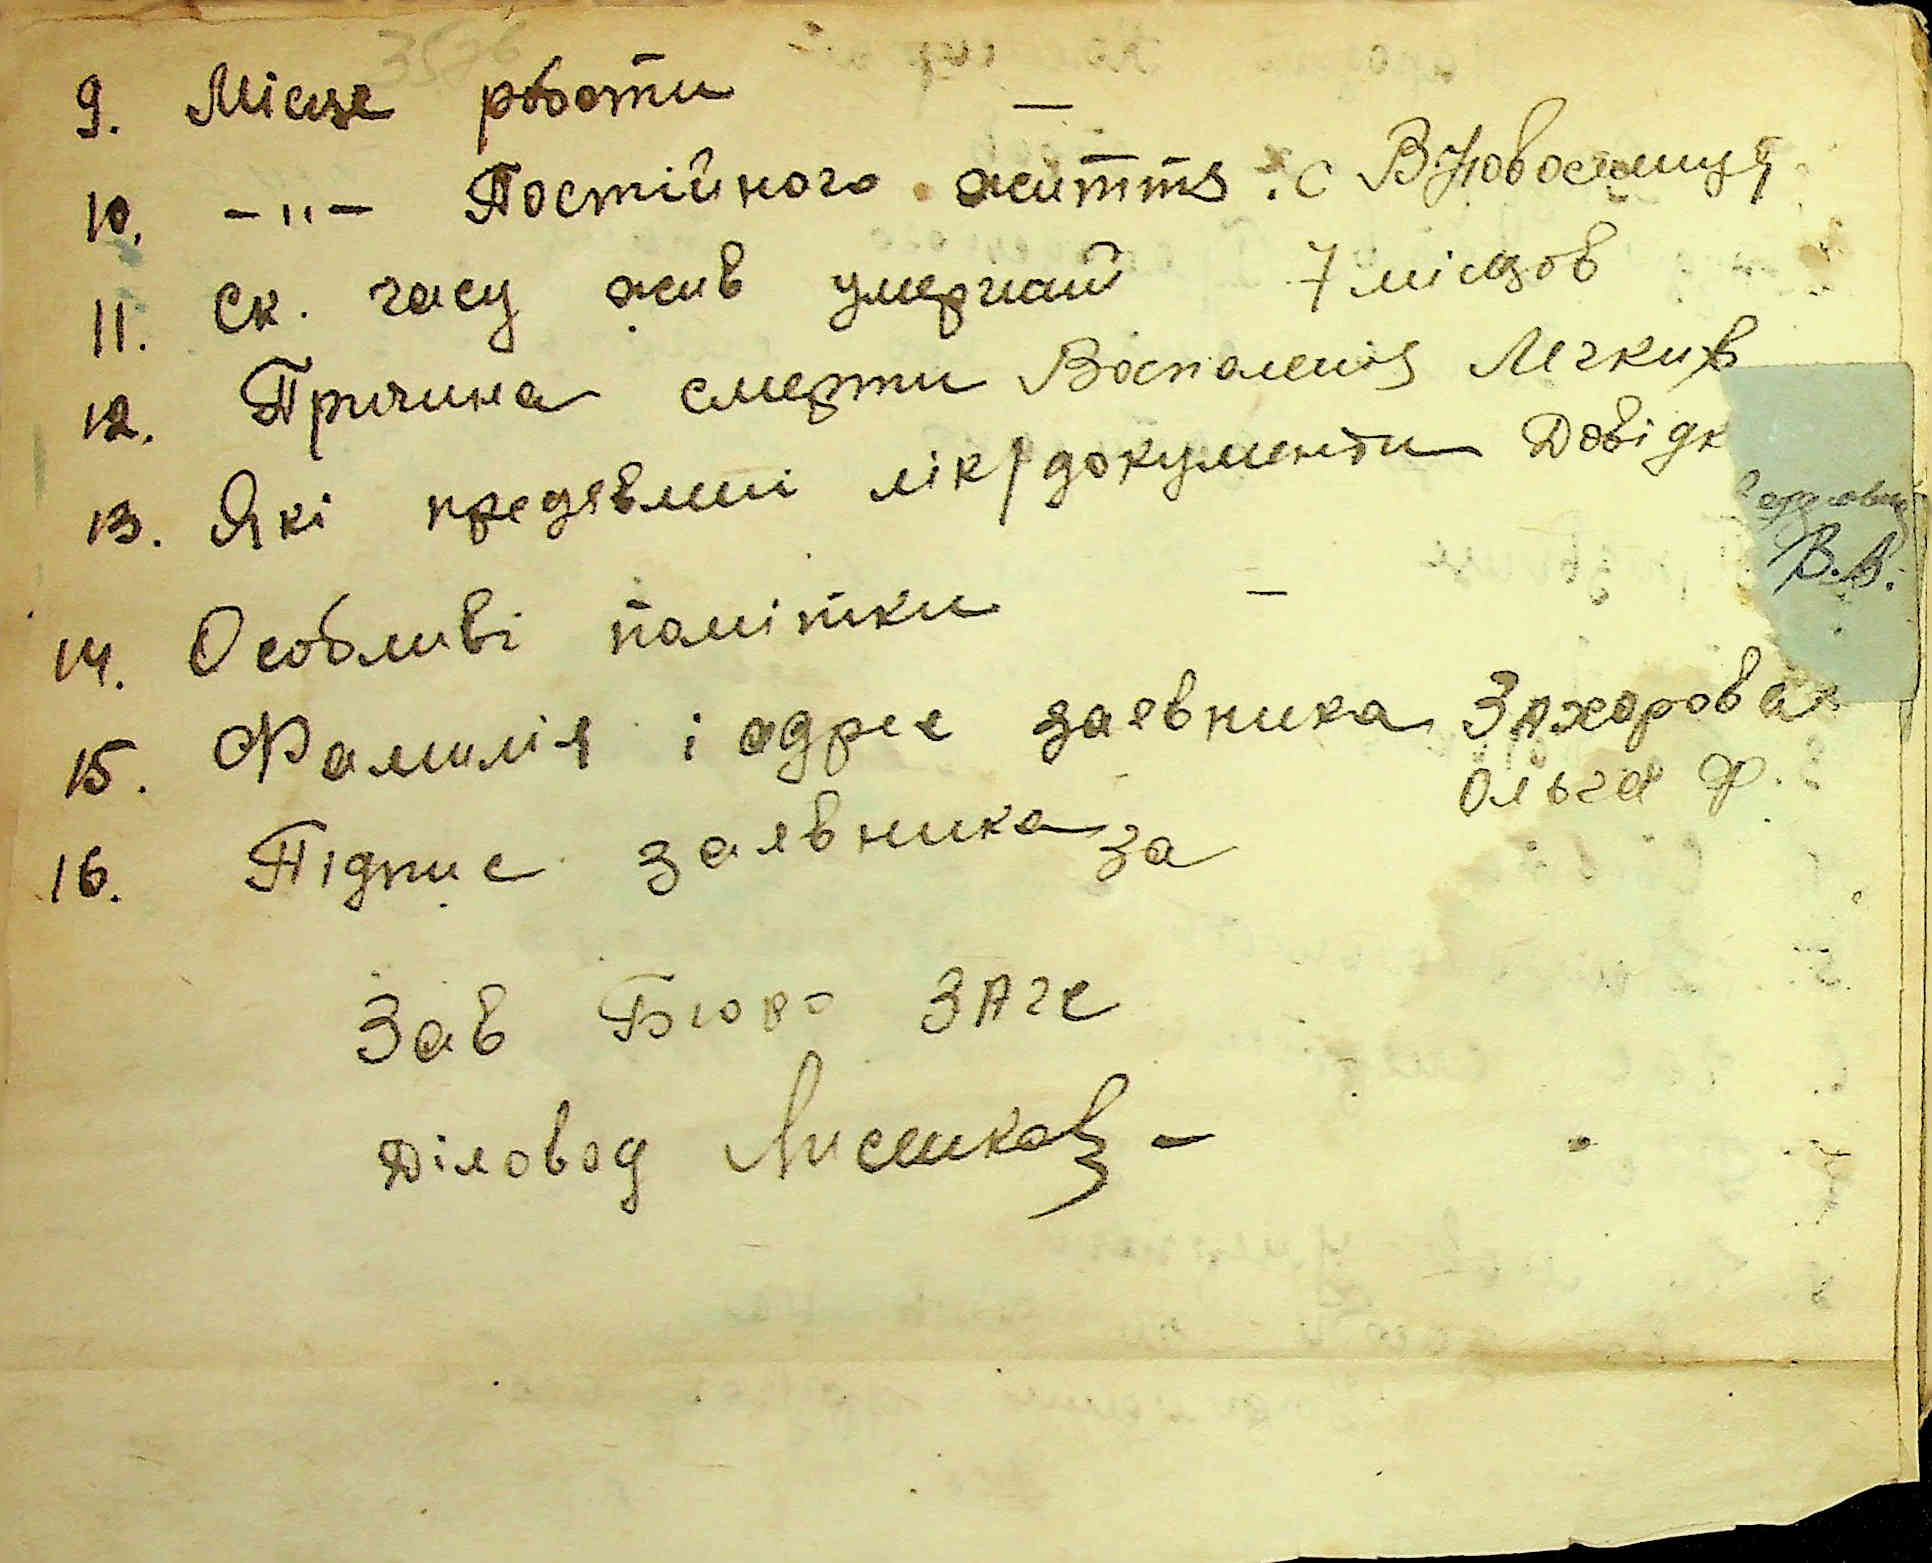 9. Місце роботи —
10. -"- Постійного життя. с В Новоселиця
11. Ск. часу жив умерший 7 місяцов
12. Причина смерти Воспаления Легких
13. Які предявлині лік/документи Довідк
В.В.
14. Особливі помітки —
15. Фамилія і адрес заявника Захарова
Ольга Ф.
16. Підпис заявника За
Зав Бюро ЗАГС
Діловод